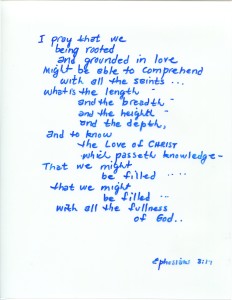 I pray that we
being rooted
and grounded in love
Might be able to comprehend
with all the saints ...
what is the length -
and the breadth -
and the heighth -
and the depth,
and to know
the Love of CHRIST
which passeth knowledge -
That we might
be filled ....
that we might
be filled ...
with all the fullness
of God..
Ephesians 3:17